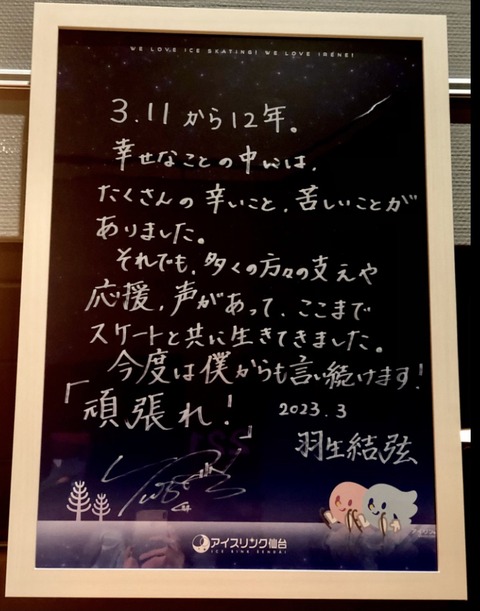 WE LOVE ICE SKATING! WE LOVE IRENE!
3.11から12年。
幸せなことの中には、
たくさんの辛いこと、苦しいことが
ありました。
それでも、多くの方々の支えや
応援、声があって、ここまで
スケートと共に生きてきました。
今度は僕からも言い続けます!
「頑張れ!」
2023.3
羽生結弦
アイスリンク仙台
ICE RINK SENDAI